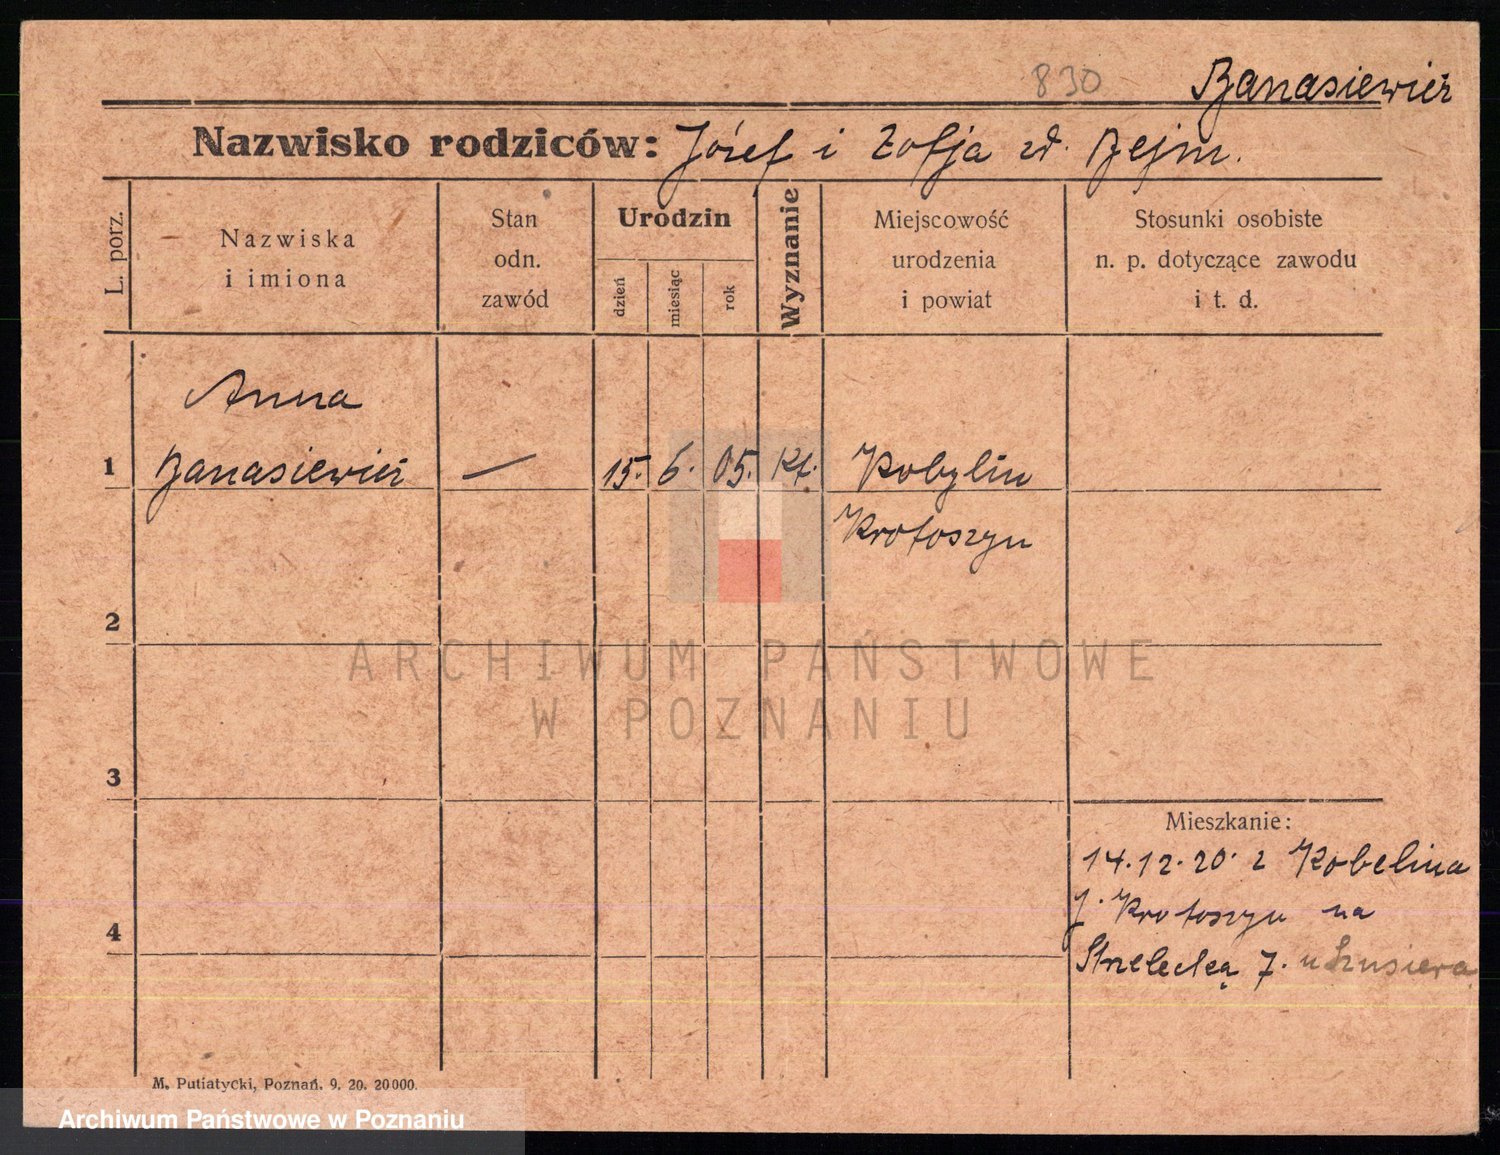 830
Banasiewicz
Nazwisko rodziców: Józef i Zofja zd. Bejm.
L. porz.
Nazwiska
i imiona
Stan
odn.
zawód
Urodzin
dzień
miesiąc
rok
Wyznanie
Miejscowość
urodzenia
i powiat
Stosunki osobiste
n. p. dotyczące zawodu
i t. d.
Anna
1 Banasiewicz — 15. 6. 05. Kt. Kobylin
Krotoszyn
2
ARCHIWUM PAŃSTWOWE
W POZNANIU
3
Mieszkanie:
14.12.20. z Kobelina
Krotoszyn na
4
Strzelecką 7. u
M. Putiatycki, Poznań. 9. 20. 20000.
Archiwum Państwowe w Poznaniu